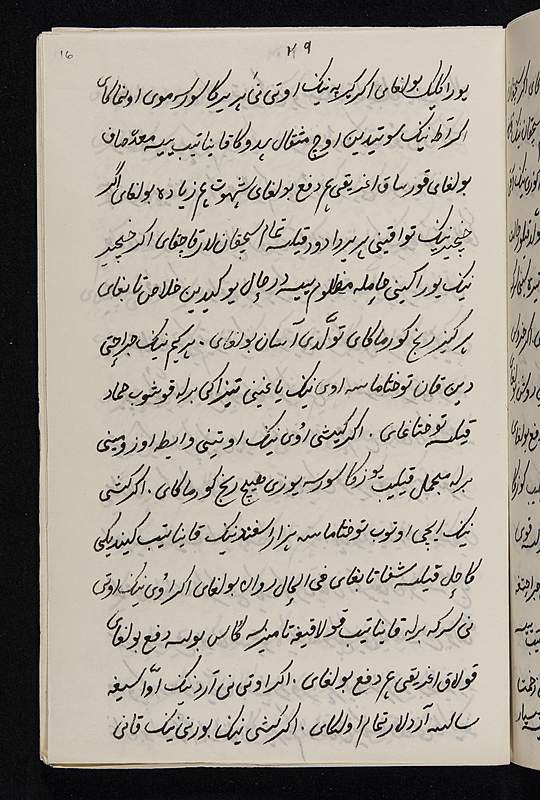 16
۴۹
یوراکلیک بولغای اکر کیرپه نیک اوتی نی هر یرکا سورسه موی اونماکای
اکر آط نیک سوتیدین اوچ مثقال بیدوکا قایناتیب ییسه معده صاف
بولغای قورساق اغریقی هم دفع بولغای شهوت هم زیاده بولغای اکر
نیک توافینی بر یردا دود قیلسه تمام سیچقان لار قاچغای اکر خچیر
نیک یوراکینی حامله مظلوم ییسه در حال یوکیدین خلاص تابغای
هرکیز رنج کورماکای تولّدی آسان بولغای . هر کیم نیک جراحتی
دین قان توختاماسه اوی نیک یا غینی تیزاکی برله قوشوب ضماد
قیلسه توختاغای . اکر کیشی اوی نیک اوتینی و ایط اوزومینی
برله قیلیب یوزکا سورسه یوزی هیچ رنج کورماکای . اکر کیشی
نیک ایچی اوتوب توختاماسه هزار اسفندنیک قایناتیب کیندیکی
کا حل قیلسه شفا تابغای فی الحال روان بولغای اکر اوی نیک اوتی
نی سرکه برله قایناتیب قولاقیغه تامیزسه کاس بولسه دفع بولغای
قولاق اغریقی هم دفع بولغای . اکر اوتی نی آردنیک آواسیغه
سالسه آردلار تمام اولکای . اکر کیشی نیک بورنی نیک قانی